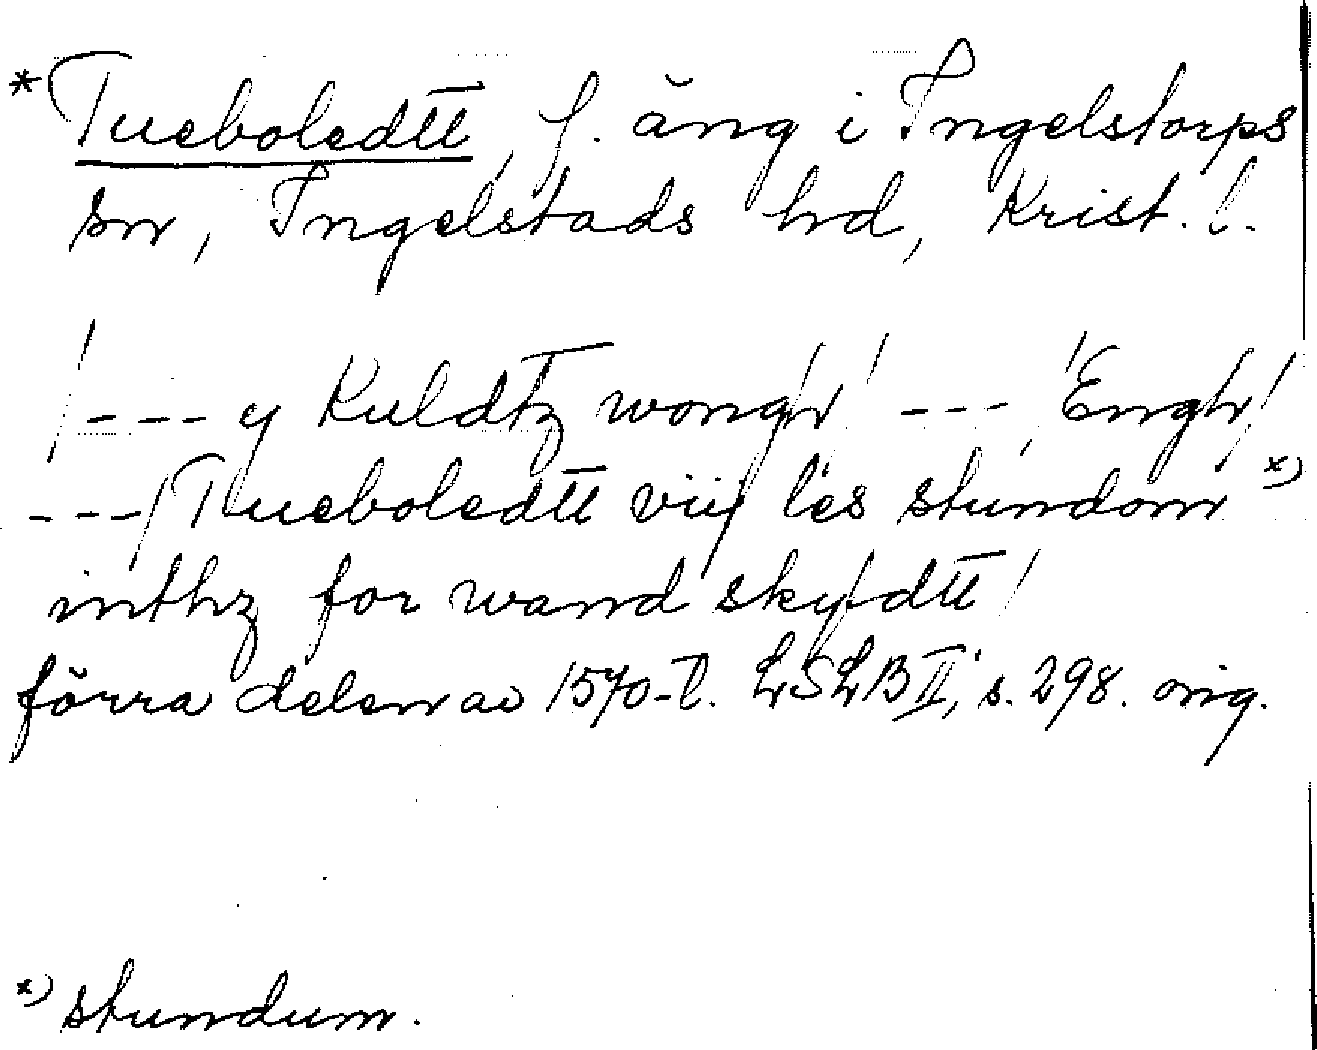 *Tueboledtt, f. äng i Ingelstorps
sn, Ingelstads hd, Krist. l.
/--- y Kuldtz wongh/ ---, /Engh/
---/Tueboledtt viij les stundom x)
inthz for wand skyldtt/
förra delen av 1570-t. LSLB II, s. 298. orig.
x) stundum.